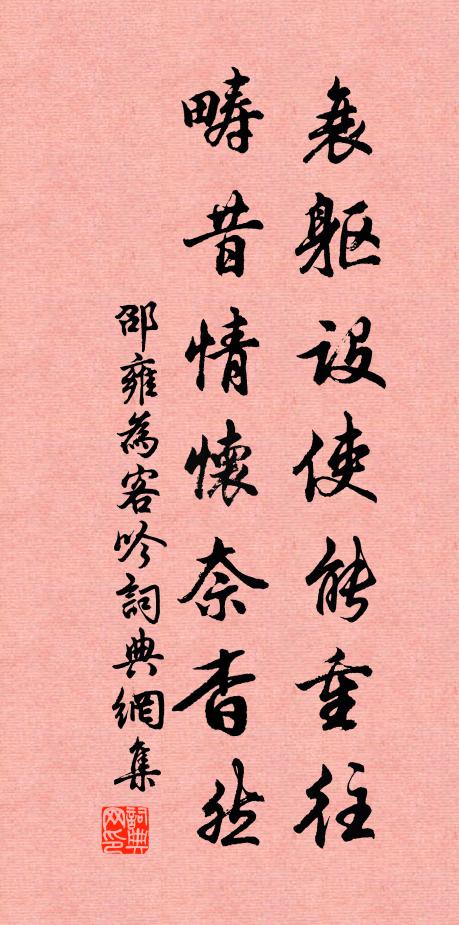 衰軀設使能重往
疇昔情懷奈杳然
邵雍為客吟詞典網集
詞典網印